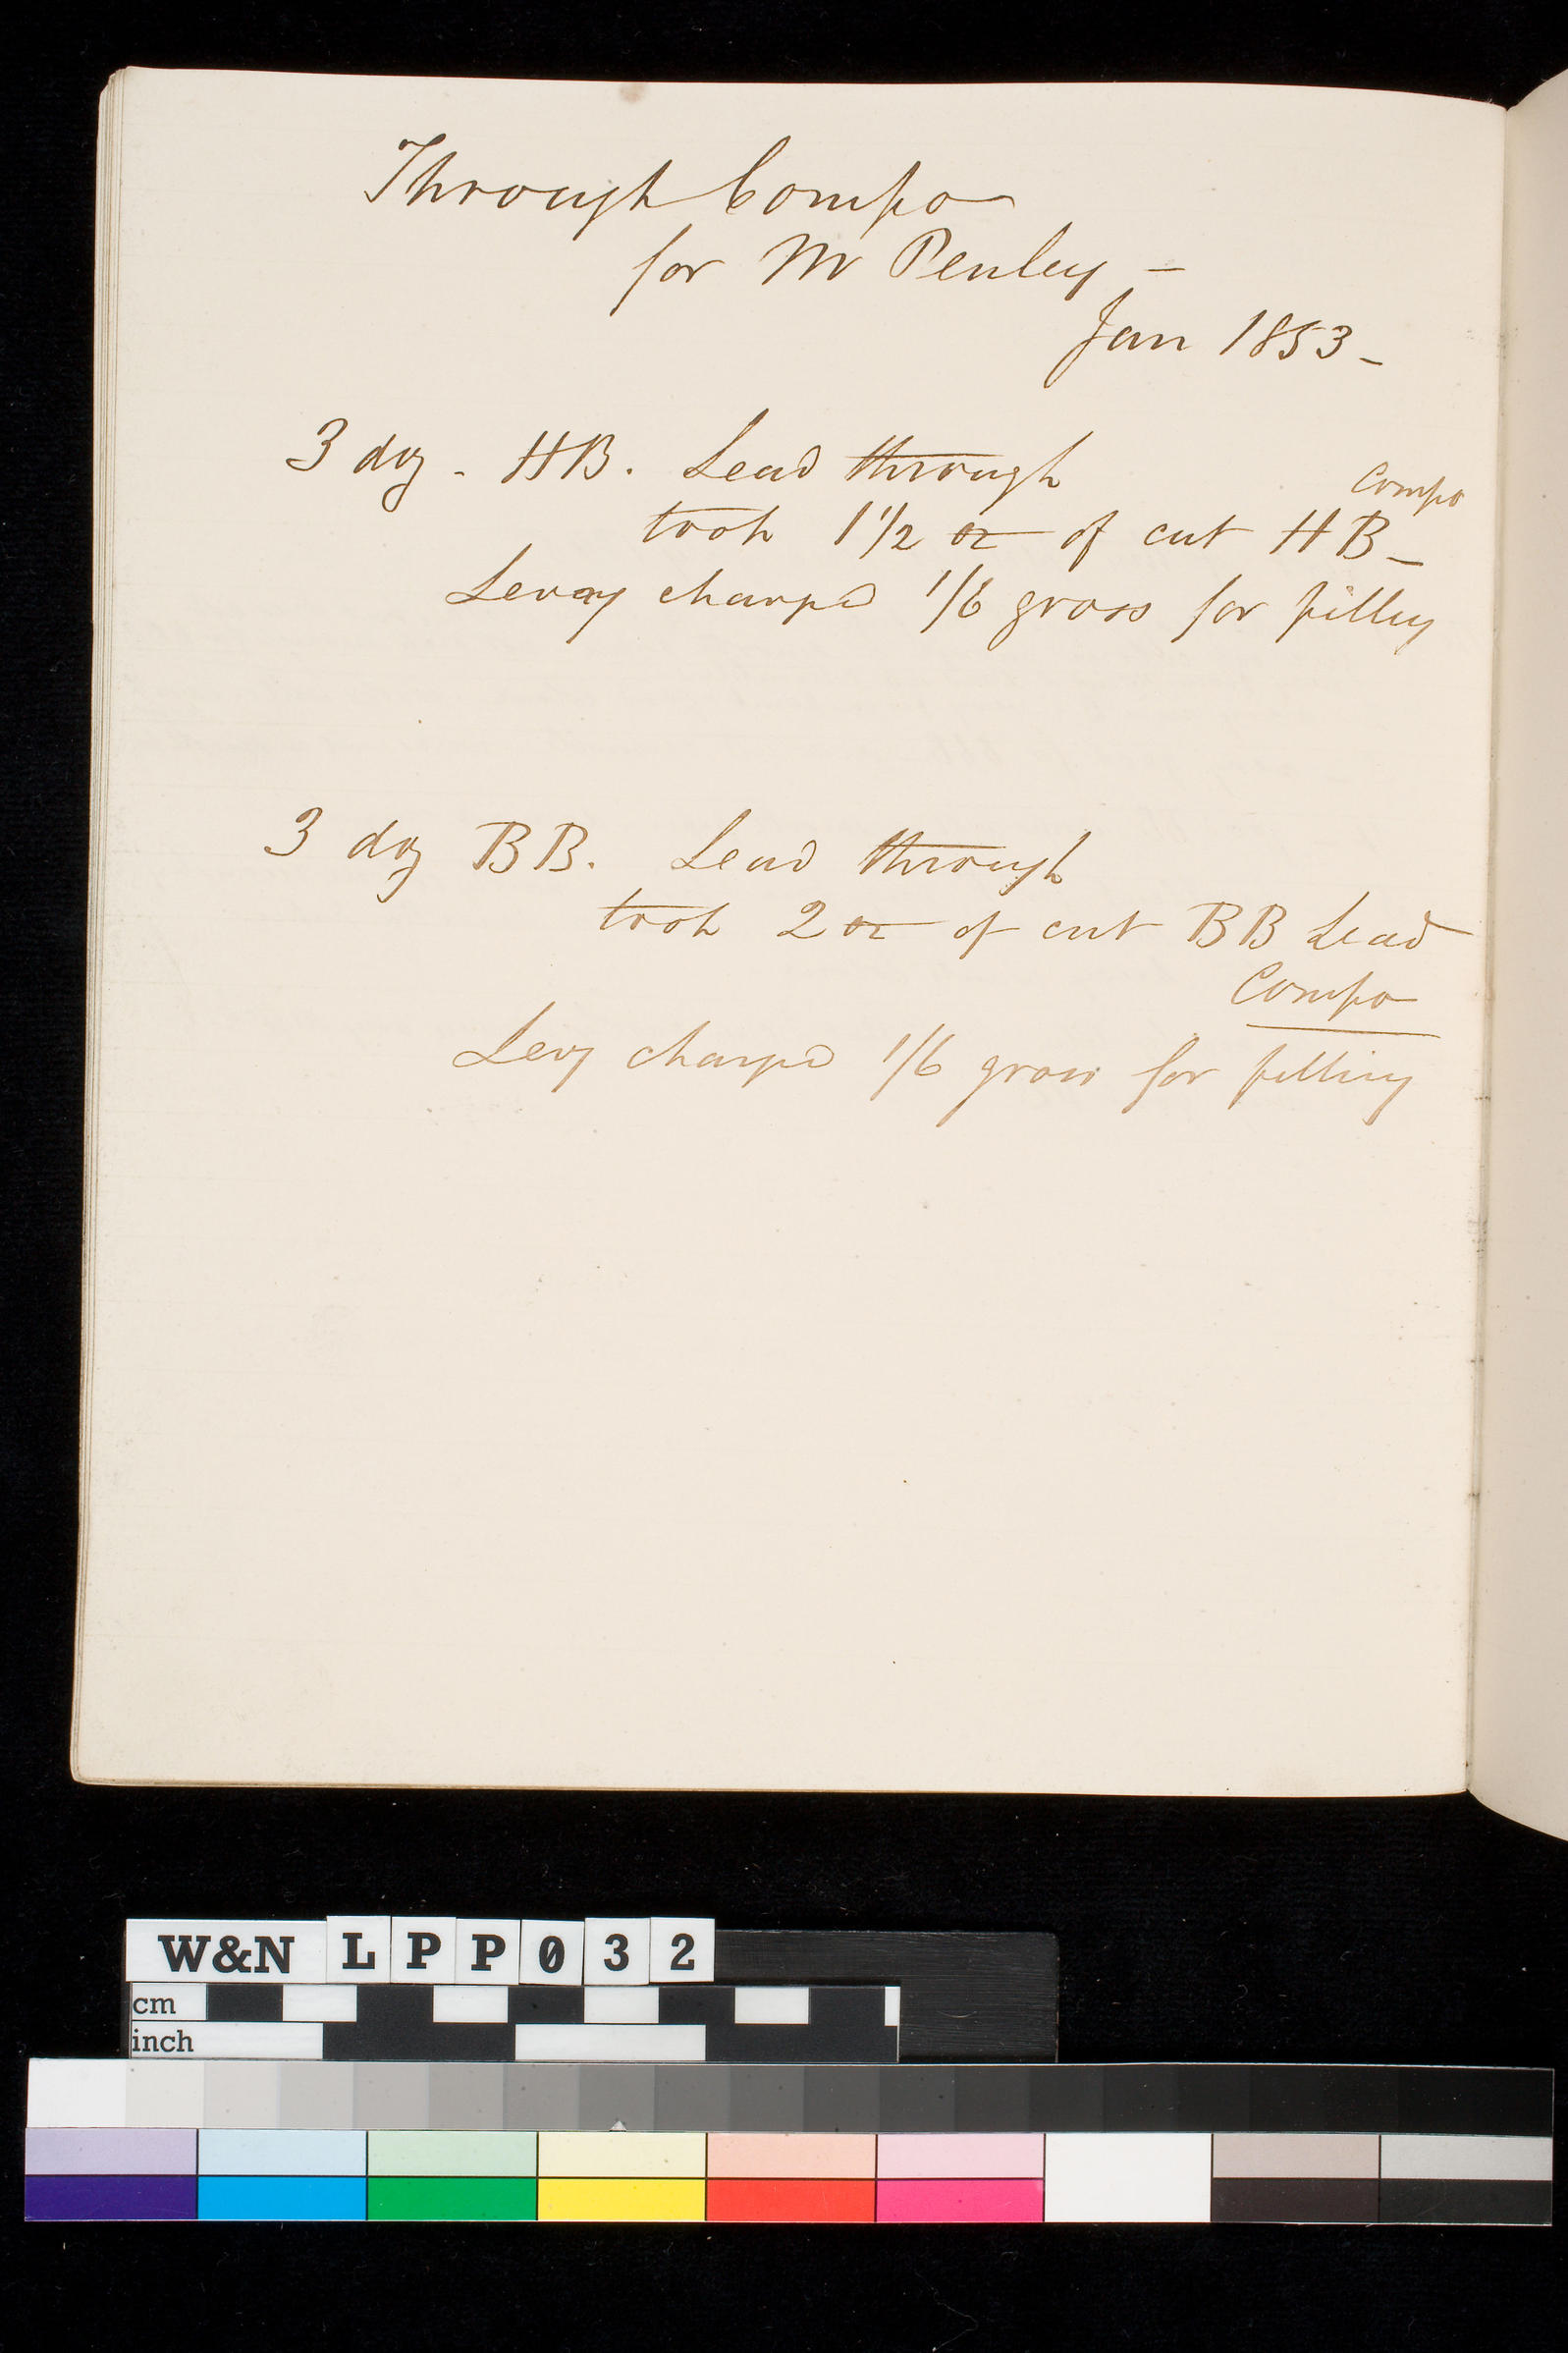 Through Compo
for Mr Penley –
Jan 1853 –
3 doz - HB. Lead through
took 1 1/2 oz of cut HB – Compo
Levy charged 1/6 gross for filling
3 doz BB. Lead through
took 2 oz of cut BB Lead
Compo
Levy charged 1/6 gross for filling
W&N LPP032
cm
inch